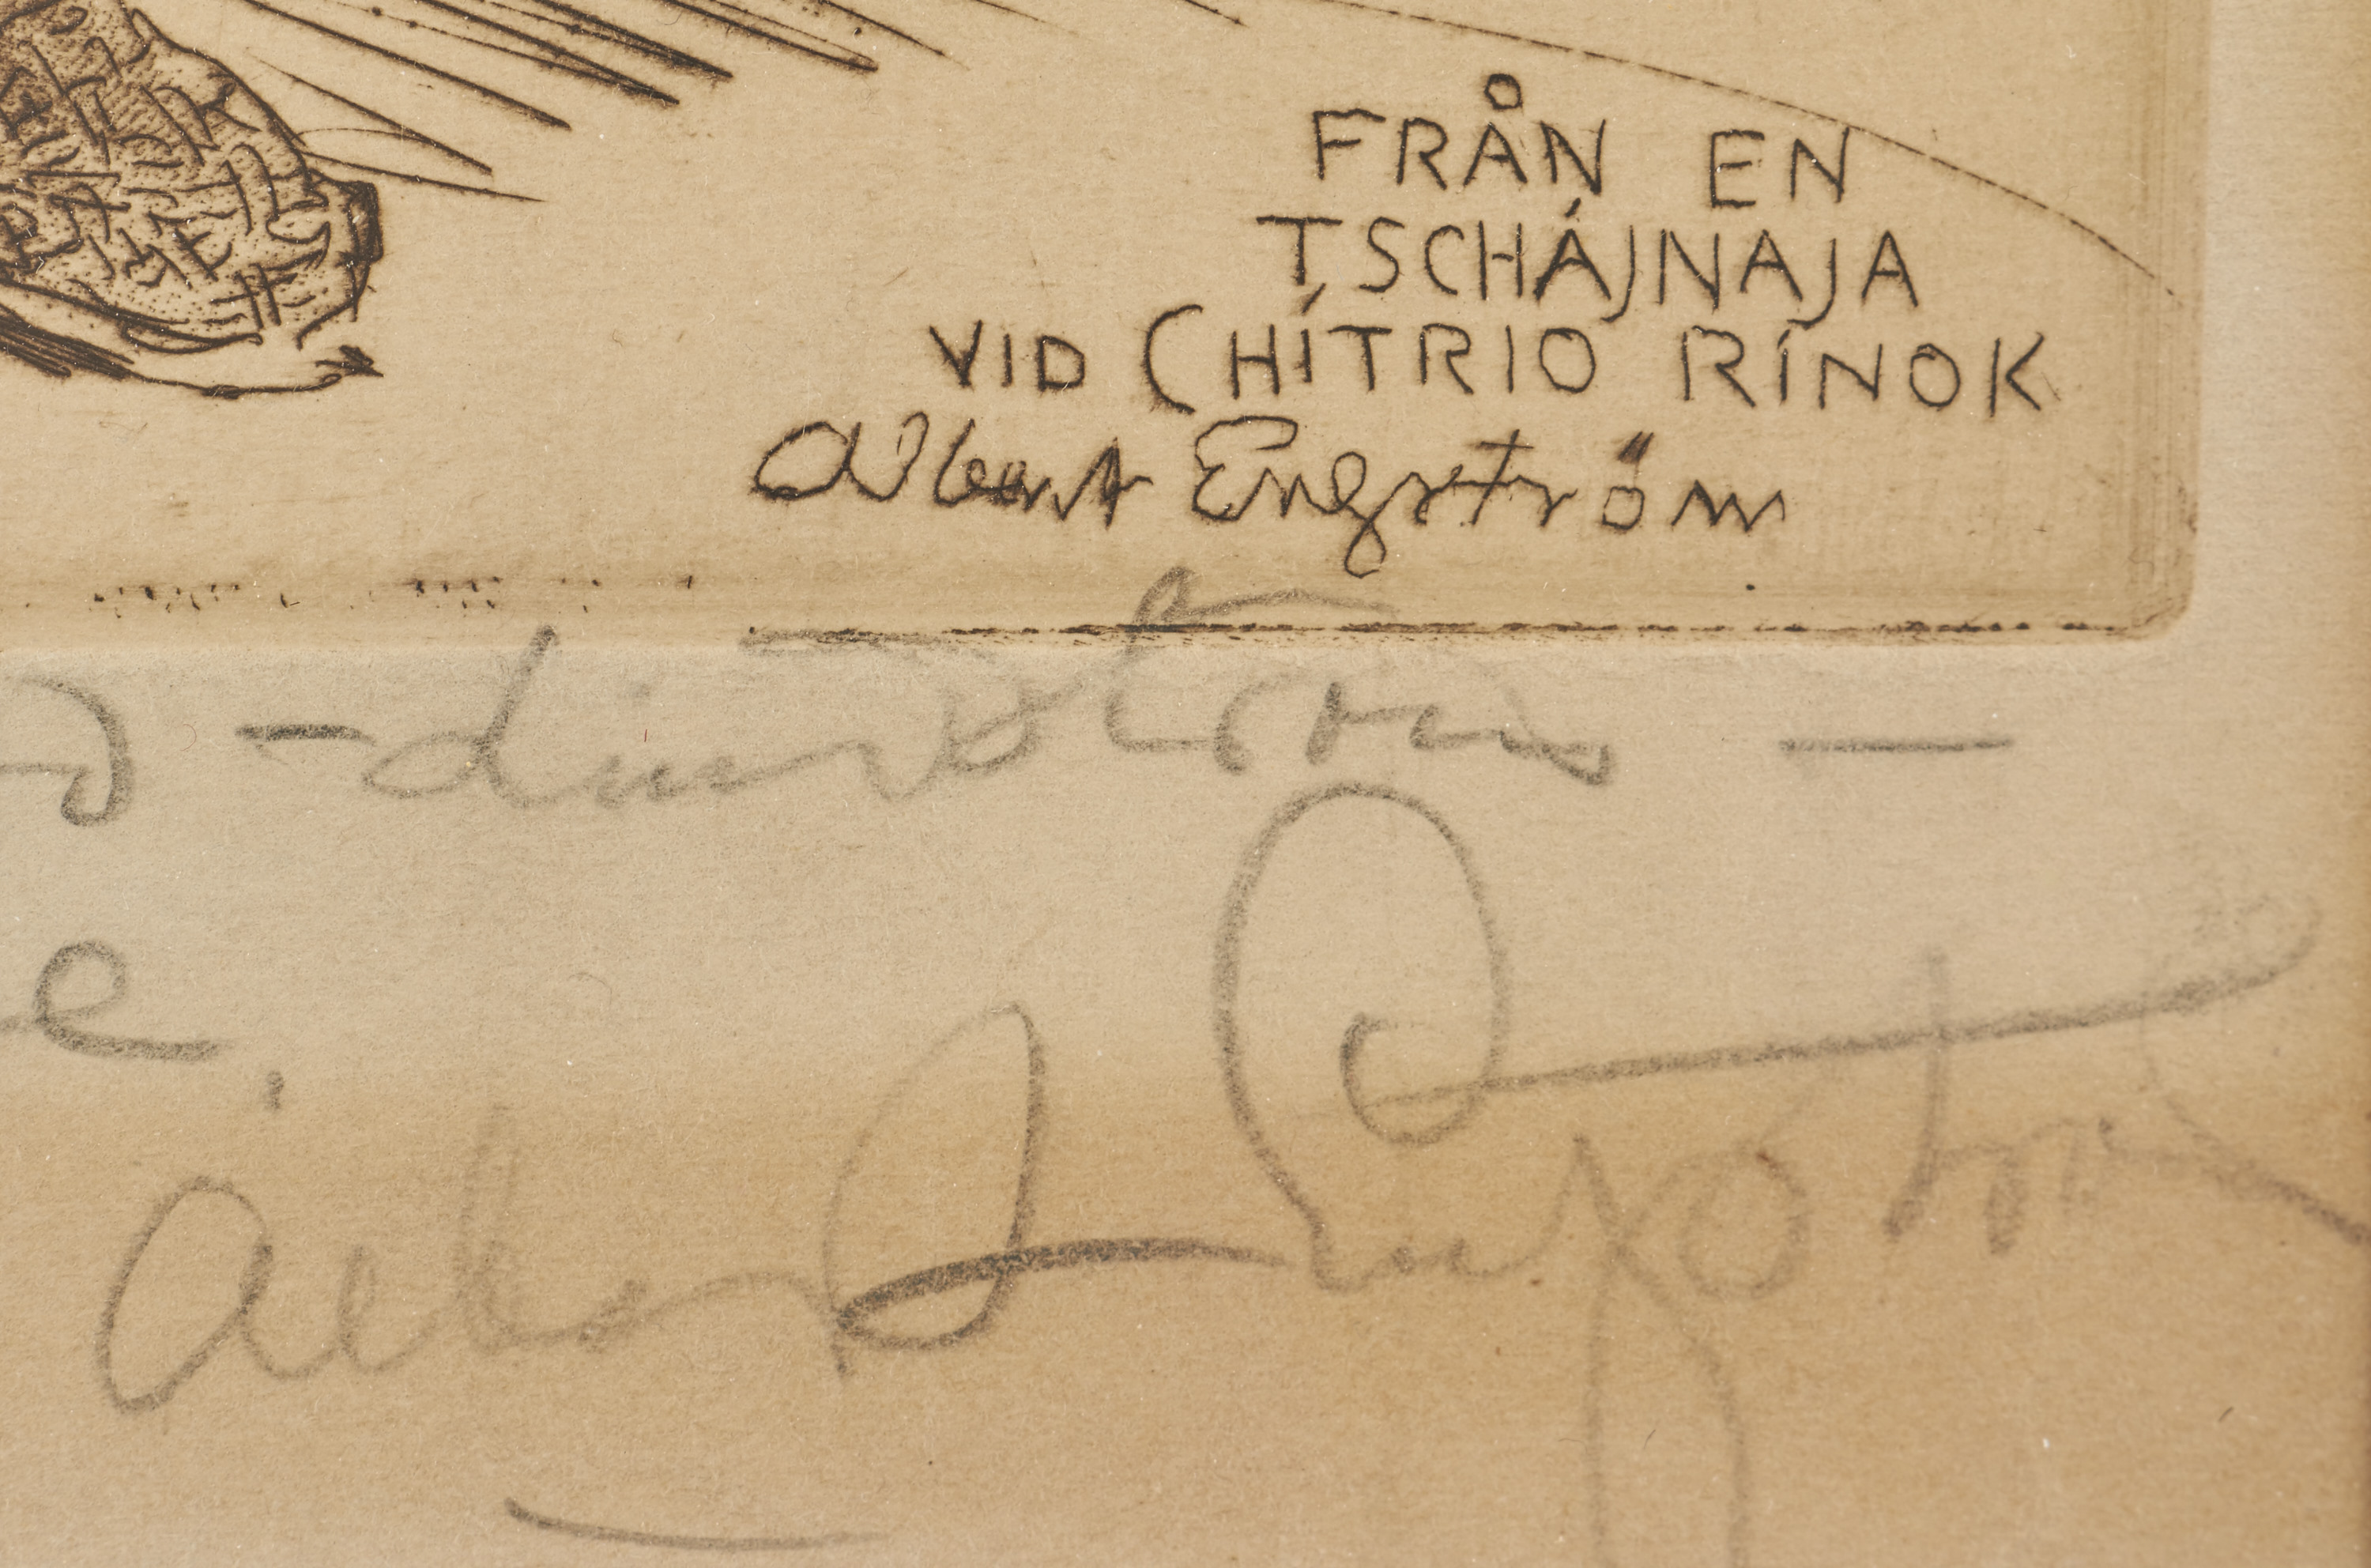 FRÅN EN
TSCHÁJNAJA
VID CHÍTRIO RÍNOK
Albert Engström
Albert Engström